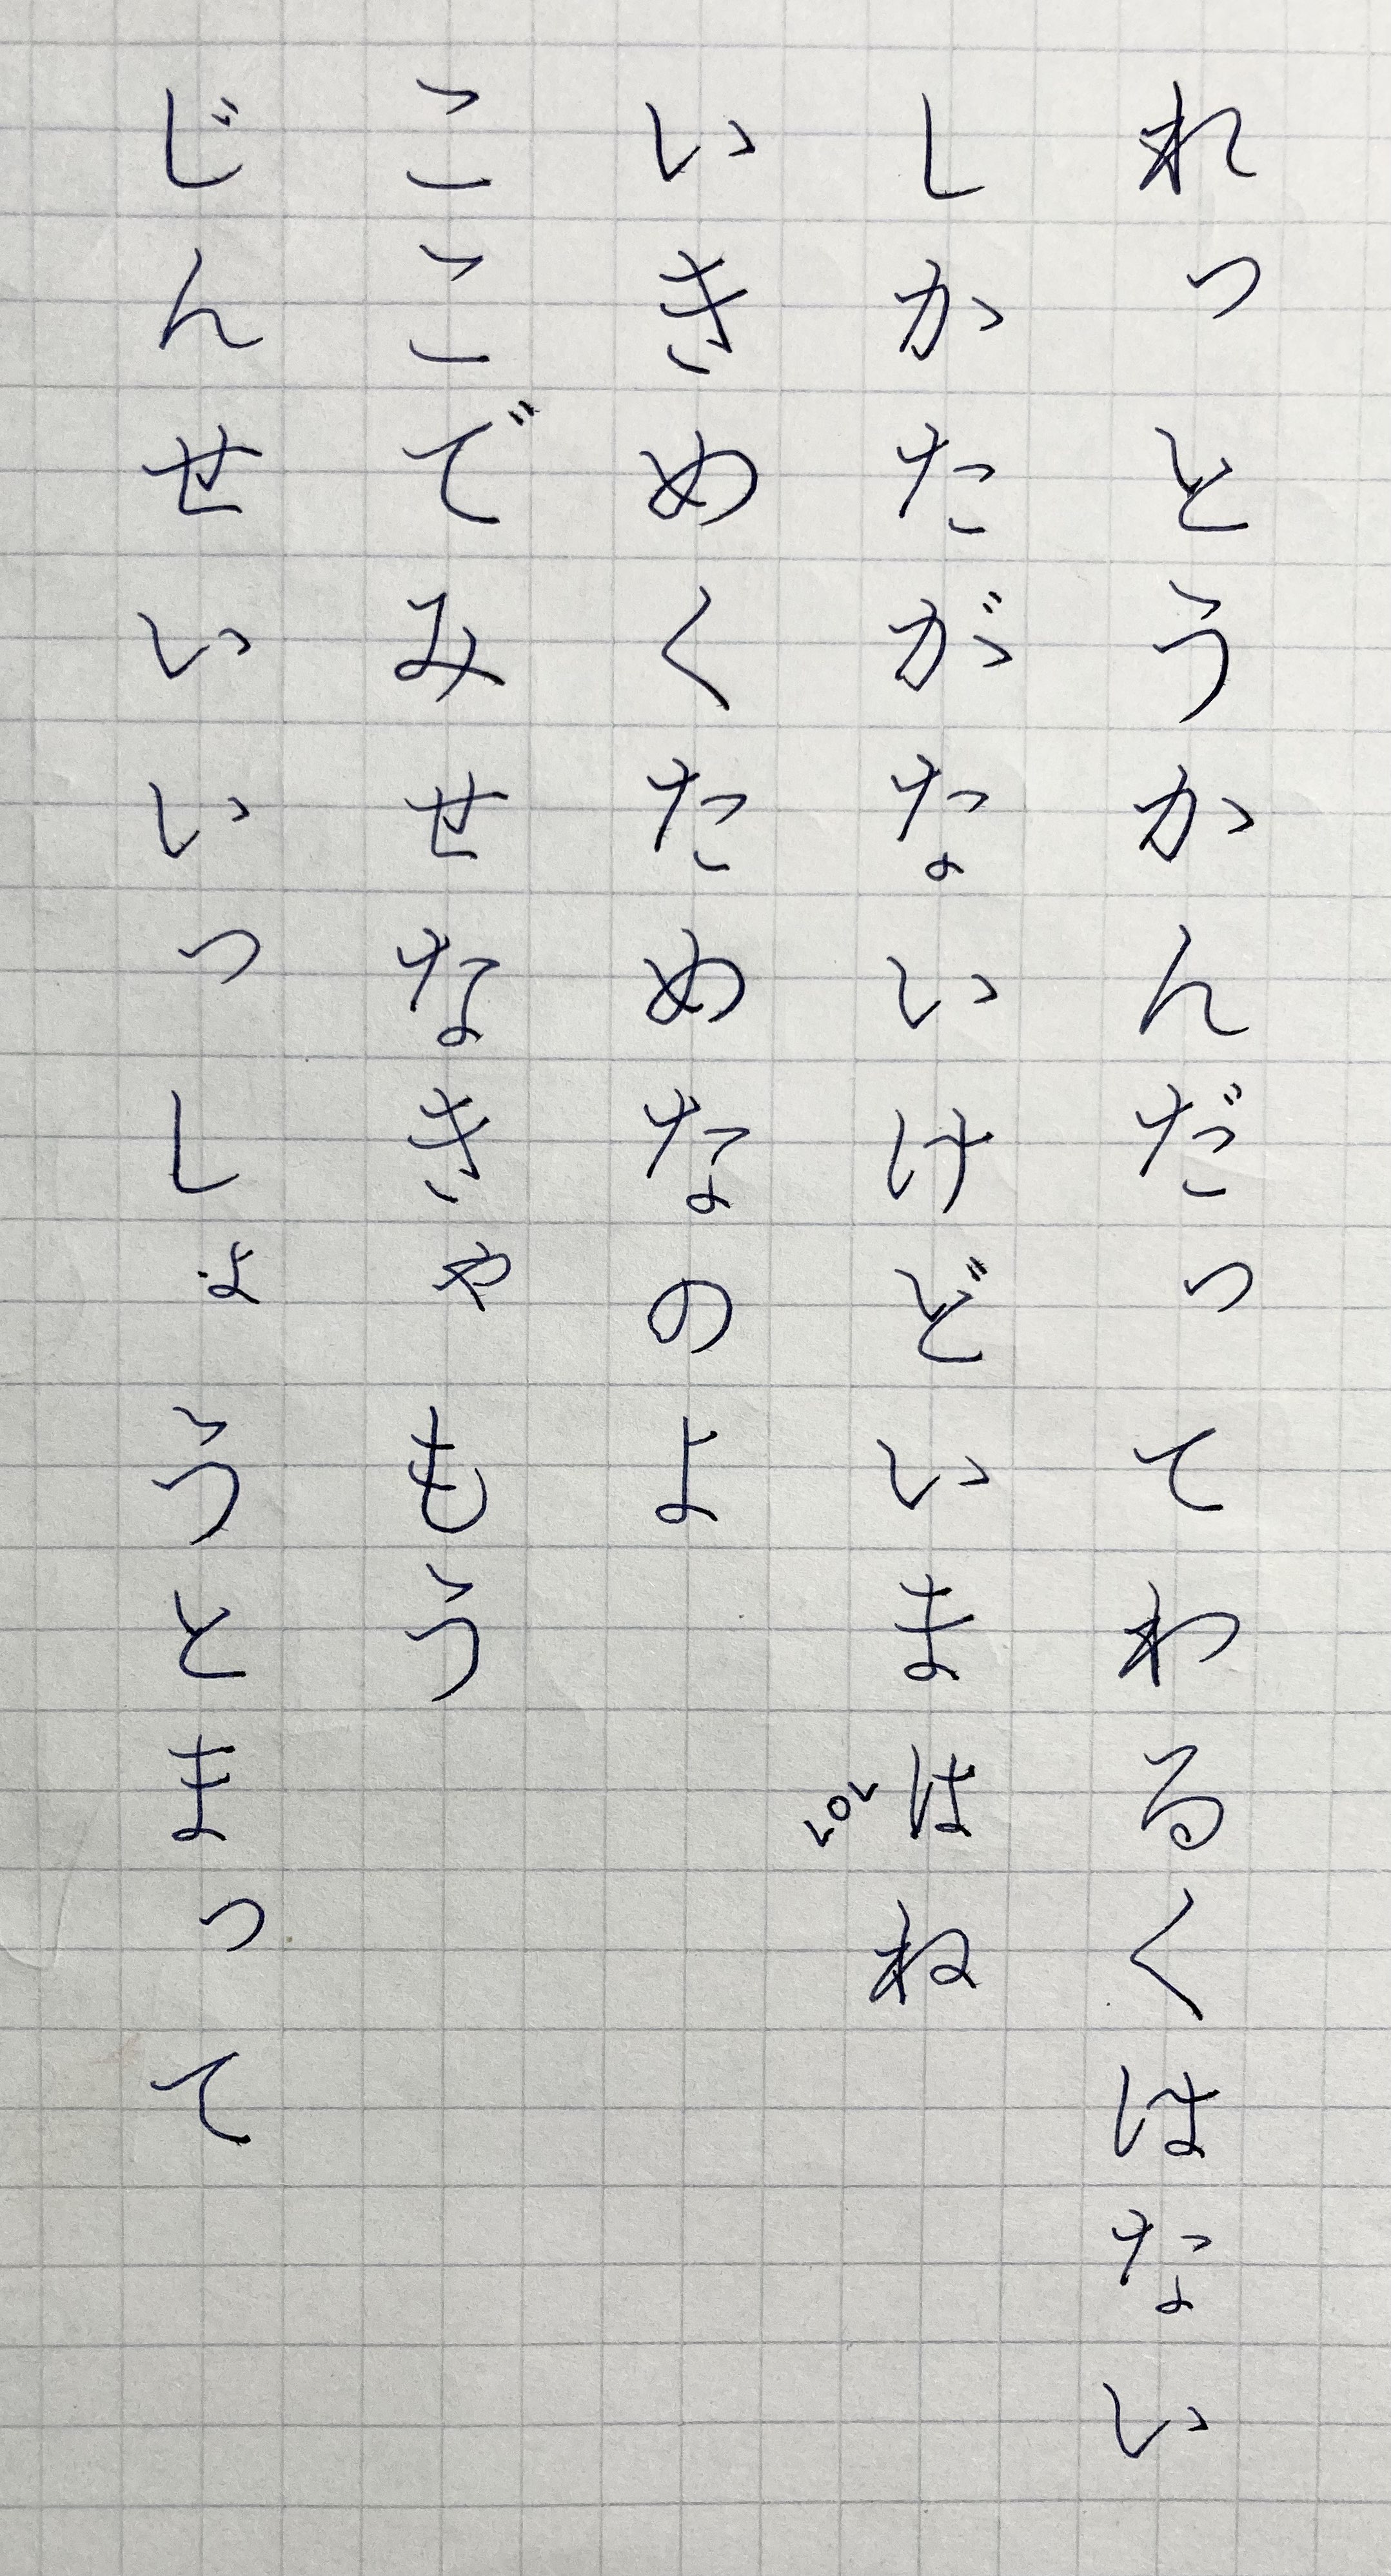 れっとうかんだってわるくはない
しかたがないけどいまはね
いきめくためなのよ
ここでみせなきゃもう
じんせいいっしょうとまって